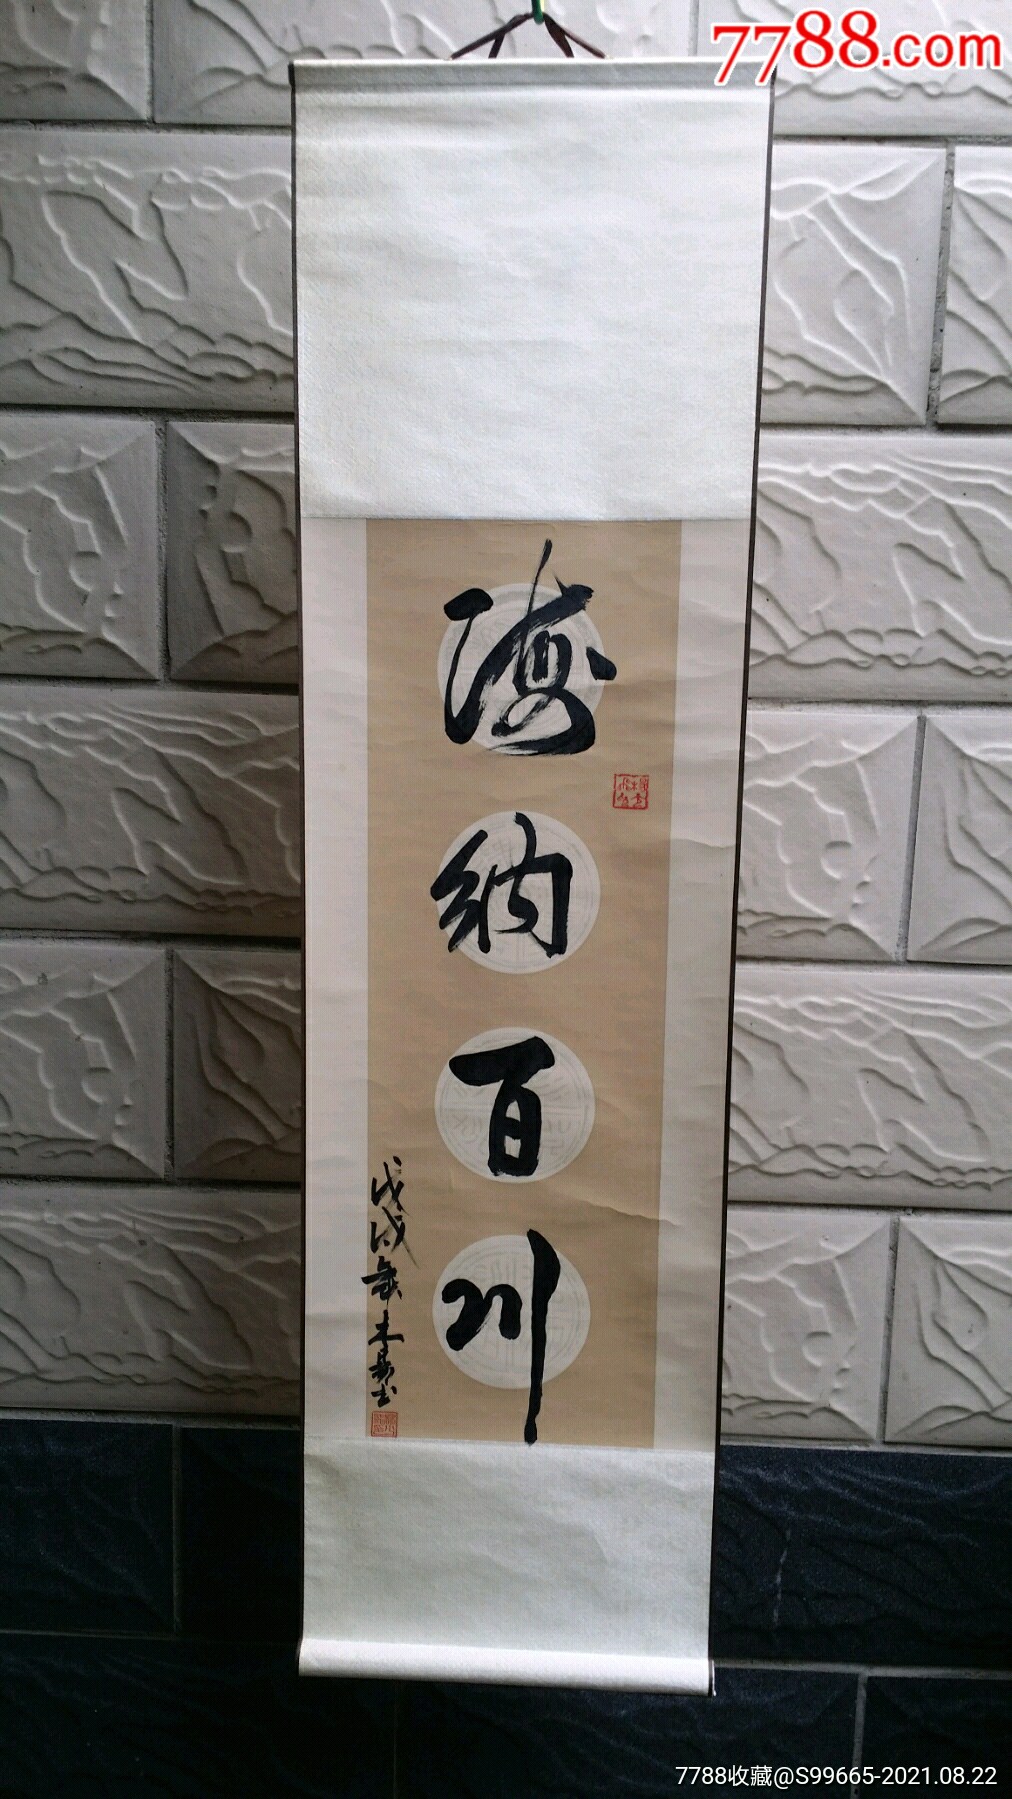 7788.com
海纳百川
戊戌歲木易书
7788收藏@S99665-2021.08.22